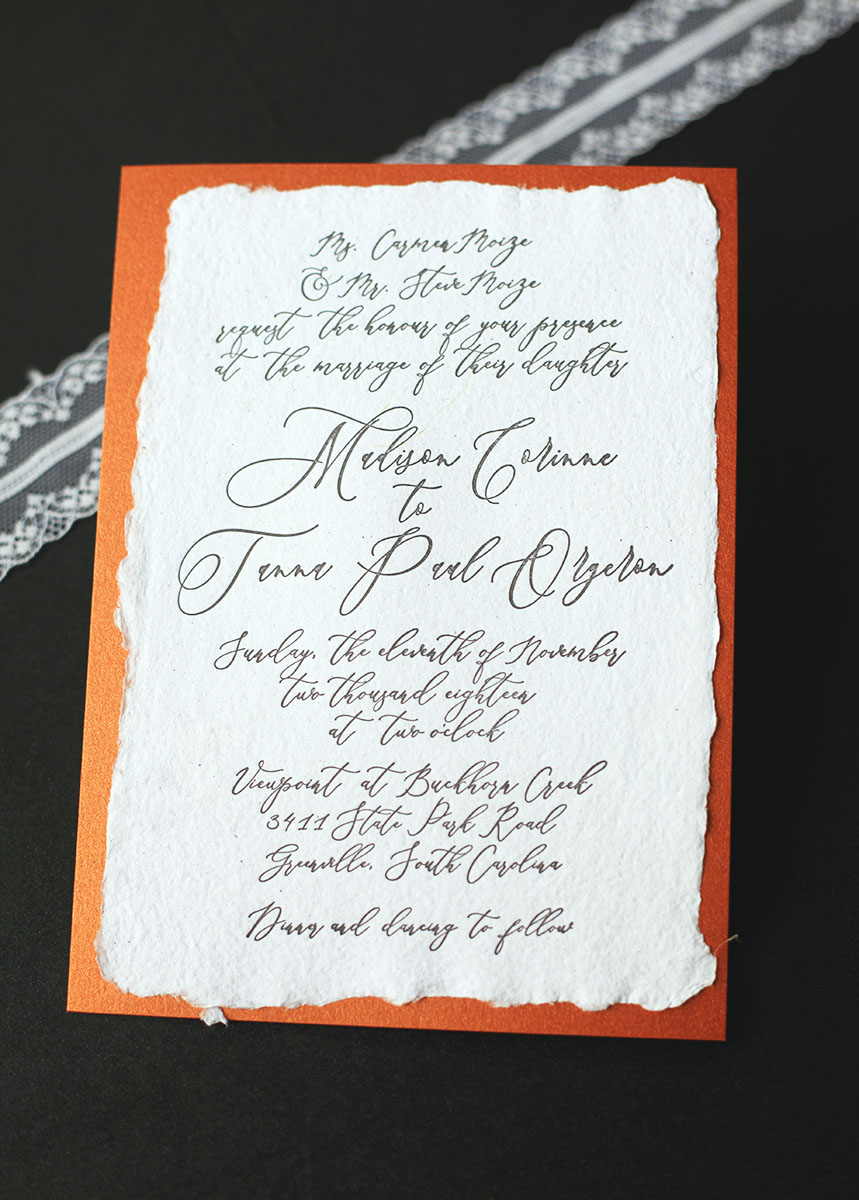 Ms. Carmen Moize
& Mr. Steve Moize
request the honour of your presence
at the marriage of their daughter
Madison Corinne
to
Tanna Paul Orgeron
Sunday, the eleventh of November
two thousand eighteen
at two o'clock
Viewpoint at Buckhorn Creek
3411 State Park Road
Greenville, South Carolina
Dinner and dancing to follow